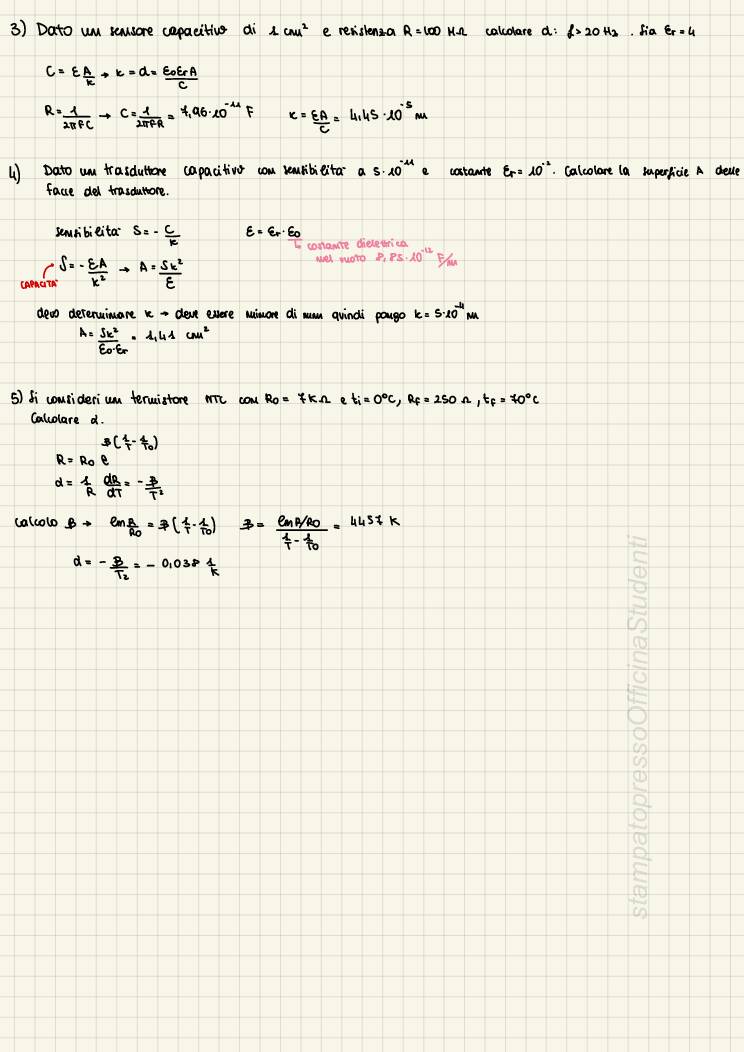 3) Dato un sensore capacitivo di 1 cm² e resistenza R = 100 MΩ calcolare d: f > 20 Hz. Sia εr = 4
C = ε A/x → x = d = ε0 εr A/C
R = 1/2πfC → C = 1/2πfR = 7,96·10⁻¹¹ F    x = εA/C = 4,45·10⁻⁵ m
4) Dato un trasduttore capacitivo con sensibilità a 5·10⁻¹¹ e costante εr = 10⁻². Calcolare la superficie A delle
facce del trasduttore.
sensibilità S = - C/x    ε = εr·ε0
costante dielettrica
nel vuoto 8,85·10⁻¹² F/m
S = - εA/x² → A = Sx²/ε
CAPACITÀ
devo determinare x → deve essere minore di mm quindi pongo x = 5·10⁻⁴ m
A = Sx²/ε0·εr = 1,41 cm²
5) Si consideri un termistore NTC con R0 = 7KΩ e ti = 0°C, RF = 250 Ω, tF = 70°C
Calcolare α.
R = R0 e^β(1/T - 1/T0)
α = 1/R dR/dT = - β/T²
calcolo β → ln R/R0 = β(1/T - 1/T0)    β = ln R/R0 / (1/T - 1/T0) = 4457 K
α = - β/T² = - 0,038 1/K
stampatopressoOfficinaStudenti